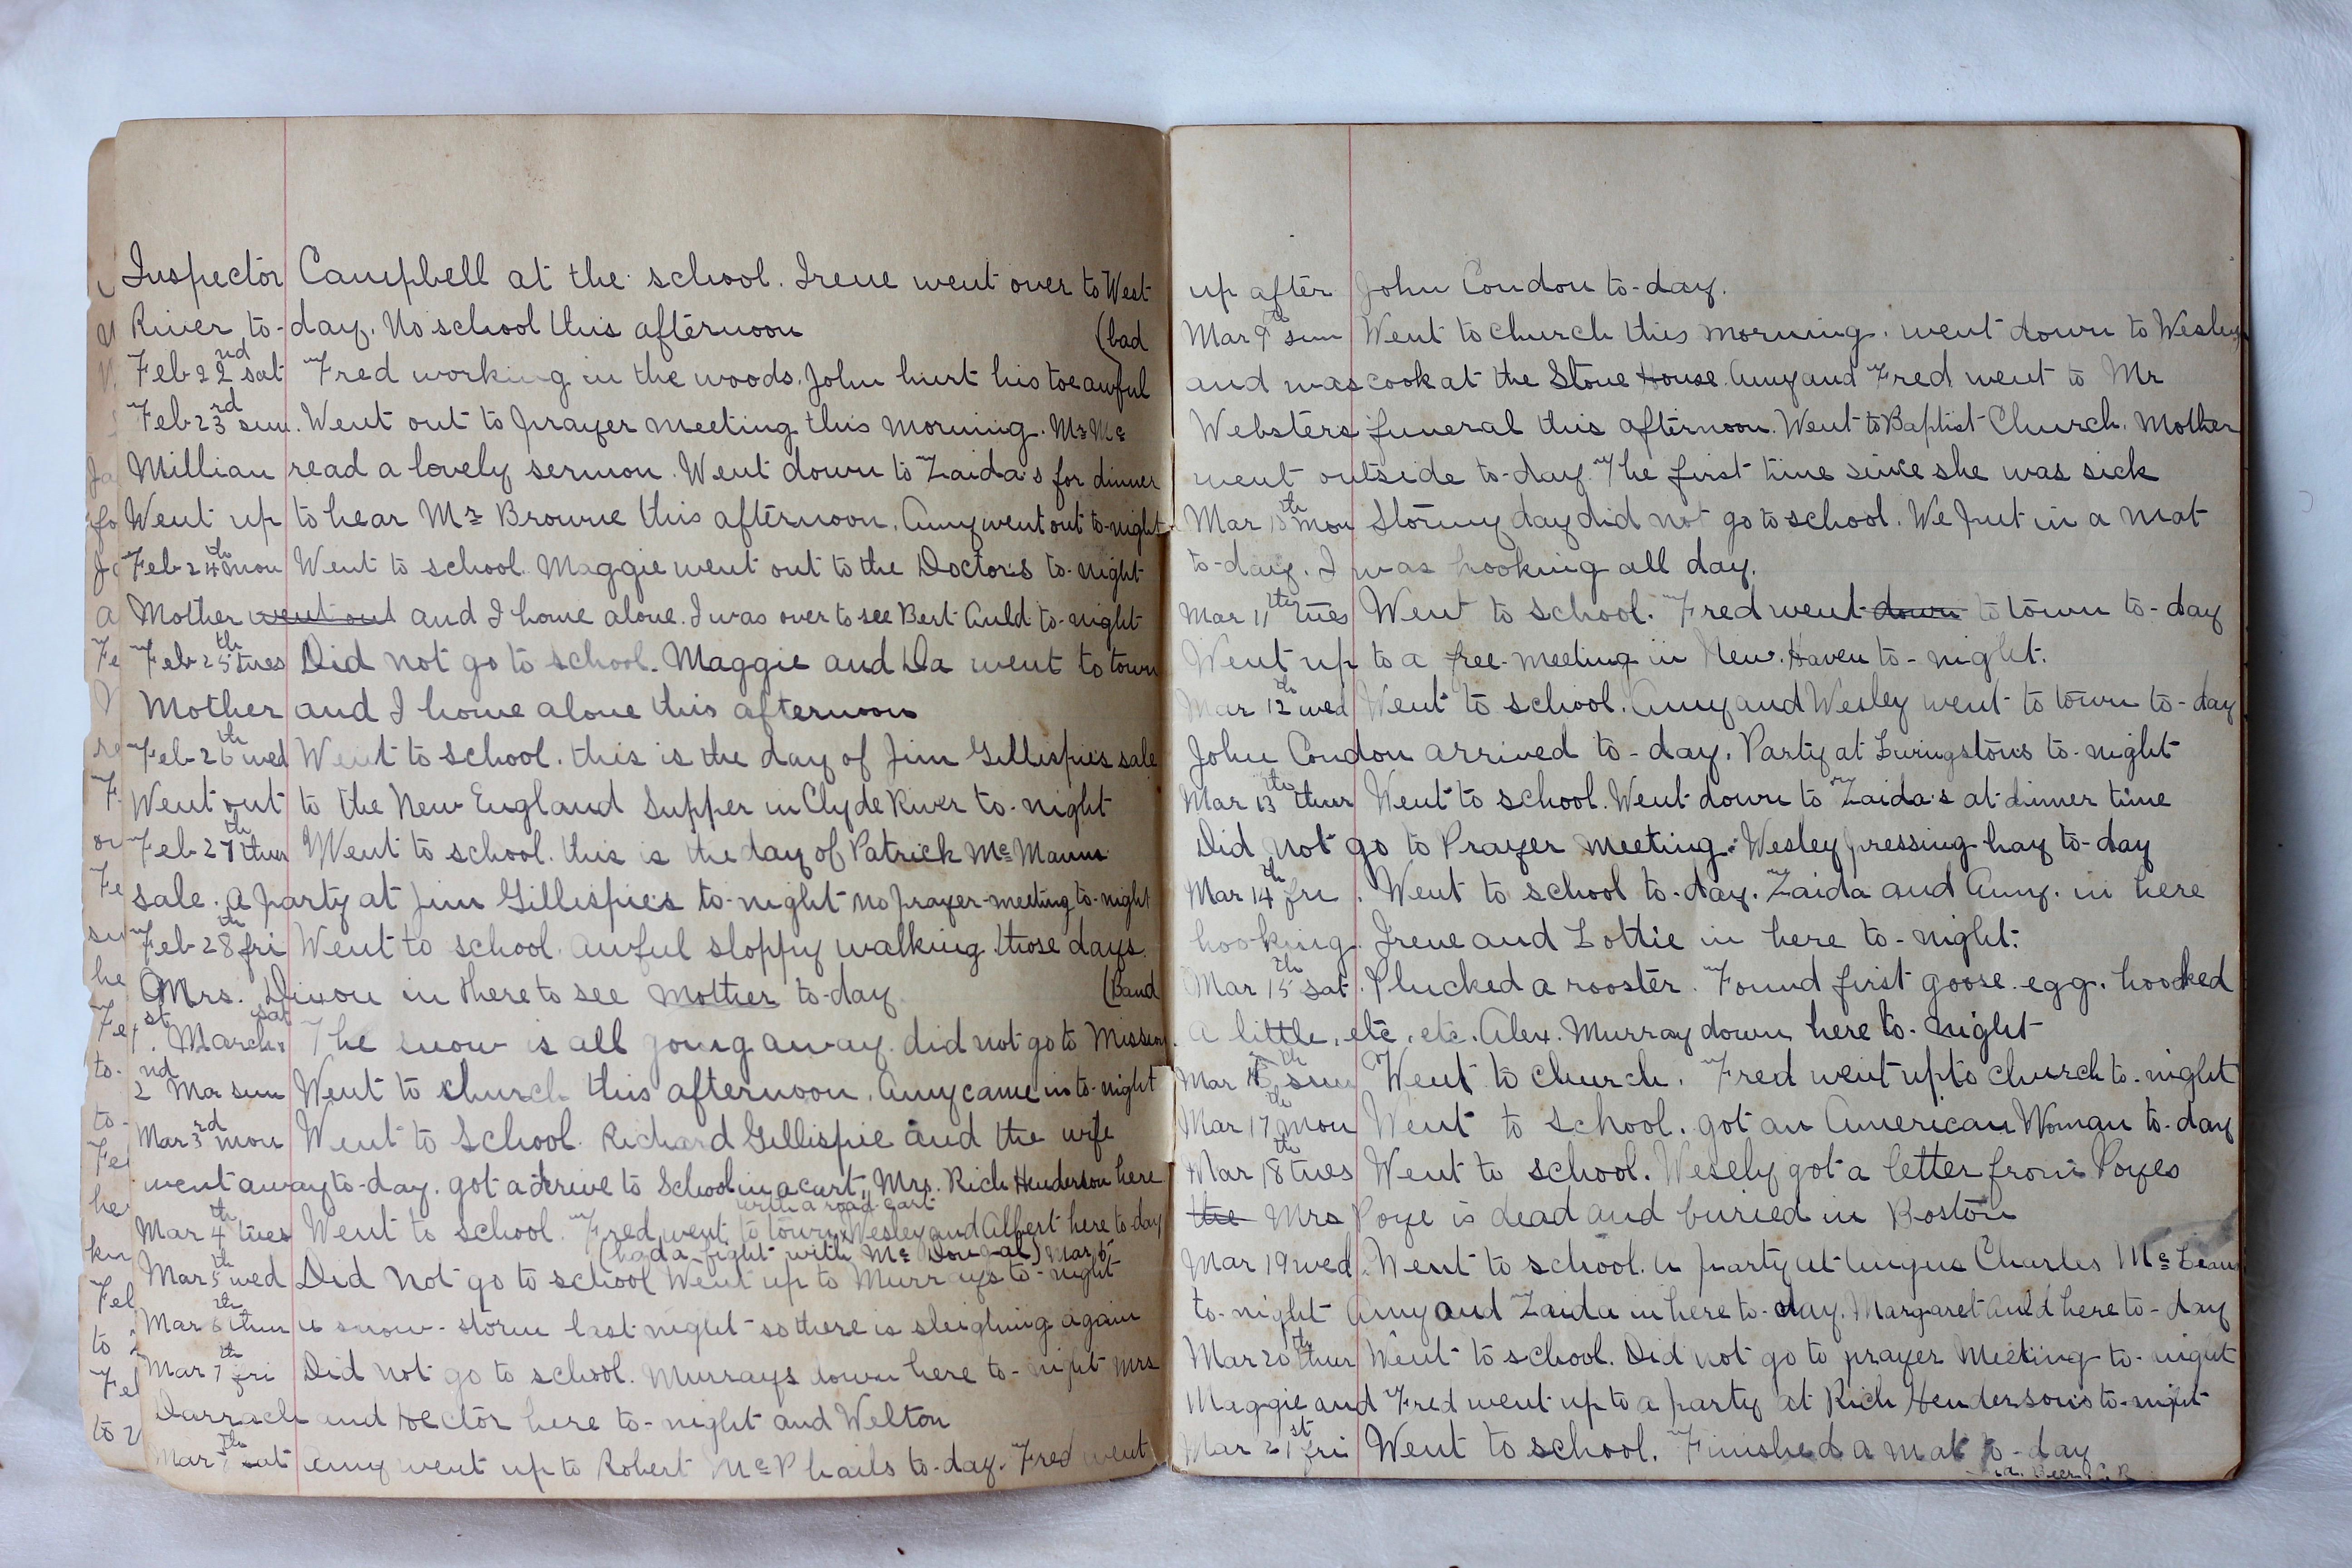 Inspector Campbell at the school. Irene went over to West
River to-day. No school this afternoon (bad
Feb 22nd sat Fred working in the woods. John hurt his toe awful
Feb 23rd sun. Went out to prayer meeting this morning. Mr Mc
Millian read a lovely sermon. Went down to Zaida's for dinner
Went up to hear Mr Browne this afternoon. Amy went out to-night
Feb 24th mon Went to school. Maggie went out to the Doctors to-night
Mother went out and I home alone. I was over to see Bert Auld to-night
Feb 25th tues Did not go to school. Maggie and Da went to town
Mother and I home alone this afternoon
Feb 26th wed Went to school. this is the day of Jim Gillispie's sale
Went out to the New England Supper in Clyde River to-night
Feb 27th thur Went to school. this is the day of Patrick McManns
sale. a party at Jim Gillispie's to-night no prayer-meeting to-night
Feb 28th fri Went to school. awful sloppy walking those days.
Mrs. Dixon in there to see Mother to-day (Band
1st March sat The snow is all going away. did not go to Mission
2nd Mar sun Went to church this afternoon. Amy came in to-night
Mar 3rd mon Went to School. Richard Gillispie and the wife
went away to-day. got a drive to School in a cart. Mrs. Rich Henderson here
with a road cart
Mar 4th tues Went to school. Fred went to town Wesley and Albert here to-day
(had a fight with Mc Dougal) Mar 6
Mar 5th wed Did not go to school Went up to Murrays to-night
Mar 6th thur a snow-storm last-night so there is sleighing again
Mar 7th fri Did not go to school. Murrays down here to-night Mrs
Darrach and Hector here to-night and Welton
Mar sat Amy went up to Robert McPhails to-day. Fred went
up after John Condon to-day.
Mar 9th sun Went to church this morning. went down to Wesley
and was cook at the Stone House. Amy and Fred went to Mr
Websters funeral this afternoon. Went to Baptist Church. Mother
went outside to-day. The first time since she was sick
Mar 10th mon Stormy day did not go to school. We put in a mat
to-day. I was hooking all day.
Mar 11th tues Went to school. Fred went down to town to-day
Went up to a free-meeting in New Haven to-night.
Mar 12th wed Went to school. Amy and Wesley went to town to-day
John Condon arrived to-day. Party at Livingston's to-night
Mar 13th thur Went to school. Went down to Zaida's at dinner time
Did not go to Prayer meeting. Wesley pressing hay to-day
Mar 14th fri. Went to school to-day. Zaida and Amy. in here
hooking. Irene and Lottie in here to-night.
Mar 15th sat. Plucked a rooster. Found first goose egg. hooked
a little, etc, etc. Alex. Murray down here to-night
Mar 16th sun Went to church. Fred went up to church to-night
Mar 17th mon Went to school. got an American Woman to-day
Mar 18th tues Went to school. Wesely got a letter from Poyes
the Mrs Poye is dead and buried in Boston
Mar 19 wed. Went to school. a party at Angus Charles McLean
to-night Amy and Zaida in here to-day. Margaret Auld here to-day
Mar 20th thur Went to school. Did not go to prayer Meeting to-night
Maggie and Fred went up to a party at Rich Henderson's to-night
Mar 21st fri Went to school. Finished a mat to-day